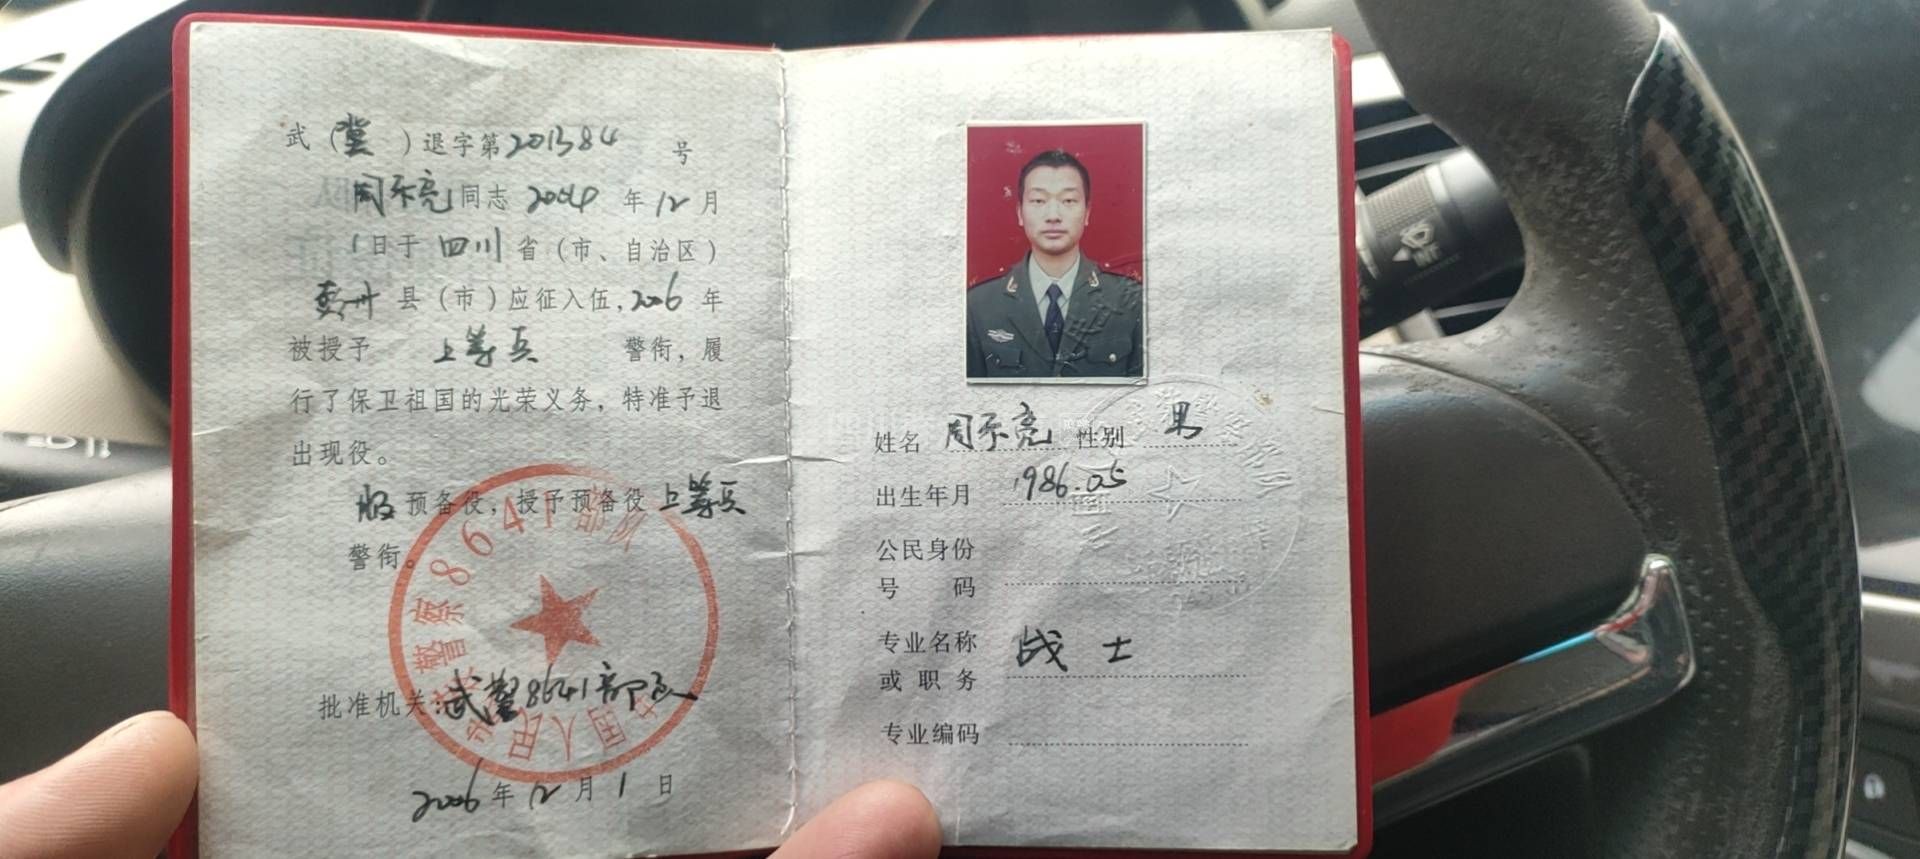 武（冀）退字第201384号
周不亮同志2004年12月
1日于四川省（市、自治区）
彭州县（市）应征入伍,2006年
被授予 上等兵 警衔，履
行了保卫祖国的光荣义务，特准予退
出现役。
服预备役，授予预备役上等兵
警衔。
批准机关:武警8641部队
2006年12月1日
中国人民武装警察8641部队
姓名 周不亮 性别 男
出生年月 1986.05
公民身份
号 码
专业名称 战士
或职务
专业编码